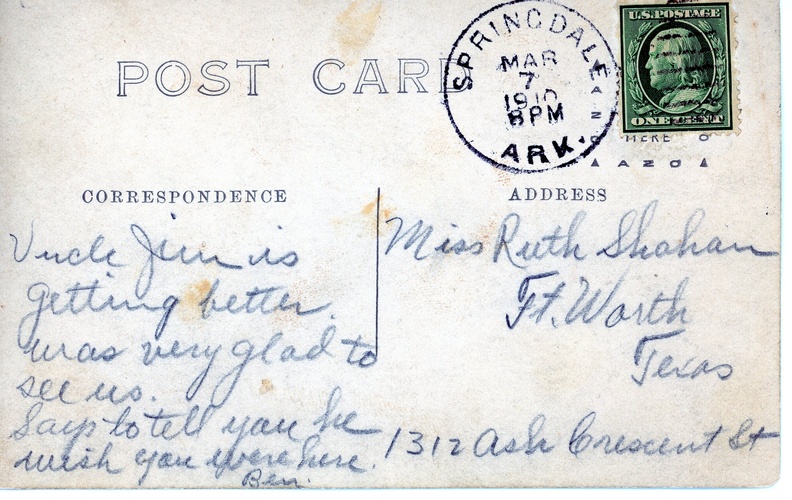 POST CARD
SPRINGDALE
MAR
7
1910
8PM
ARK.
U.S. POSTAGE
ONE CENT
HERE
AZO
CORRESPONDENCE
Uncle Jim is
getting better.
was very glad to
see us.
Says to tell you he
wish you were here.
Ben.
ADDRESS
Miss Ruth Shahan
Ft. Worth
Texas
1312 Ash Crescent St